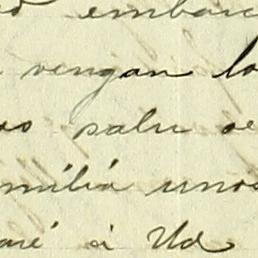 embarc
vengan lo
salu de
milia unos
aré á Ud